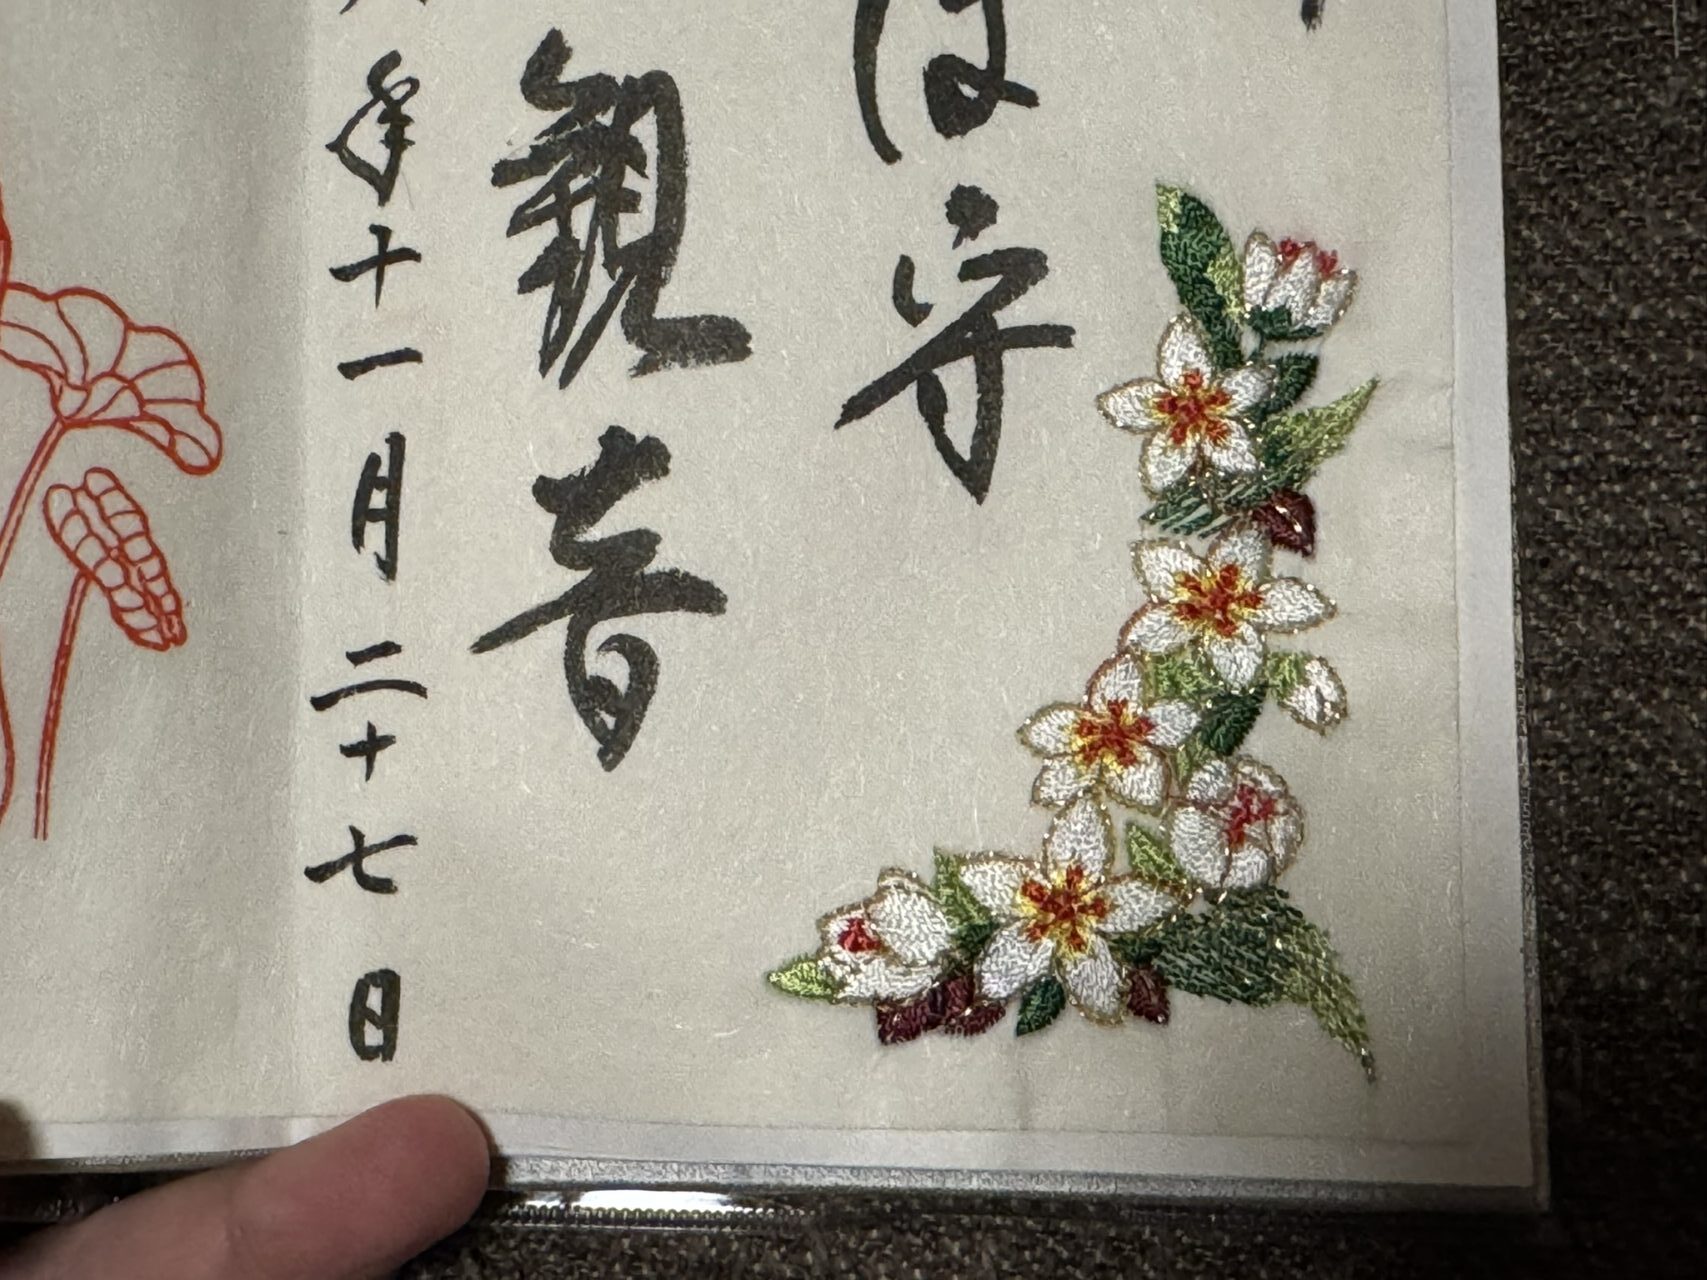 守
観音
年十一月二十七日